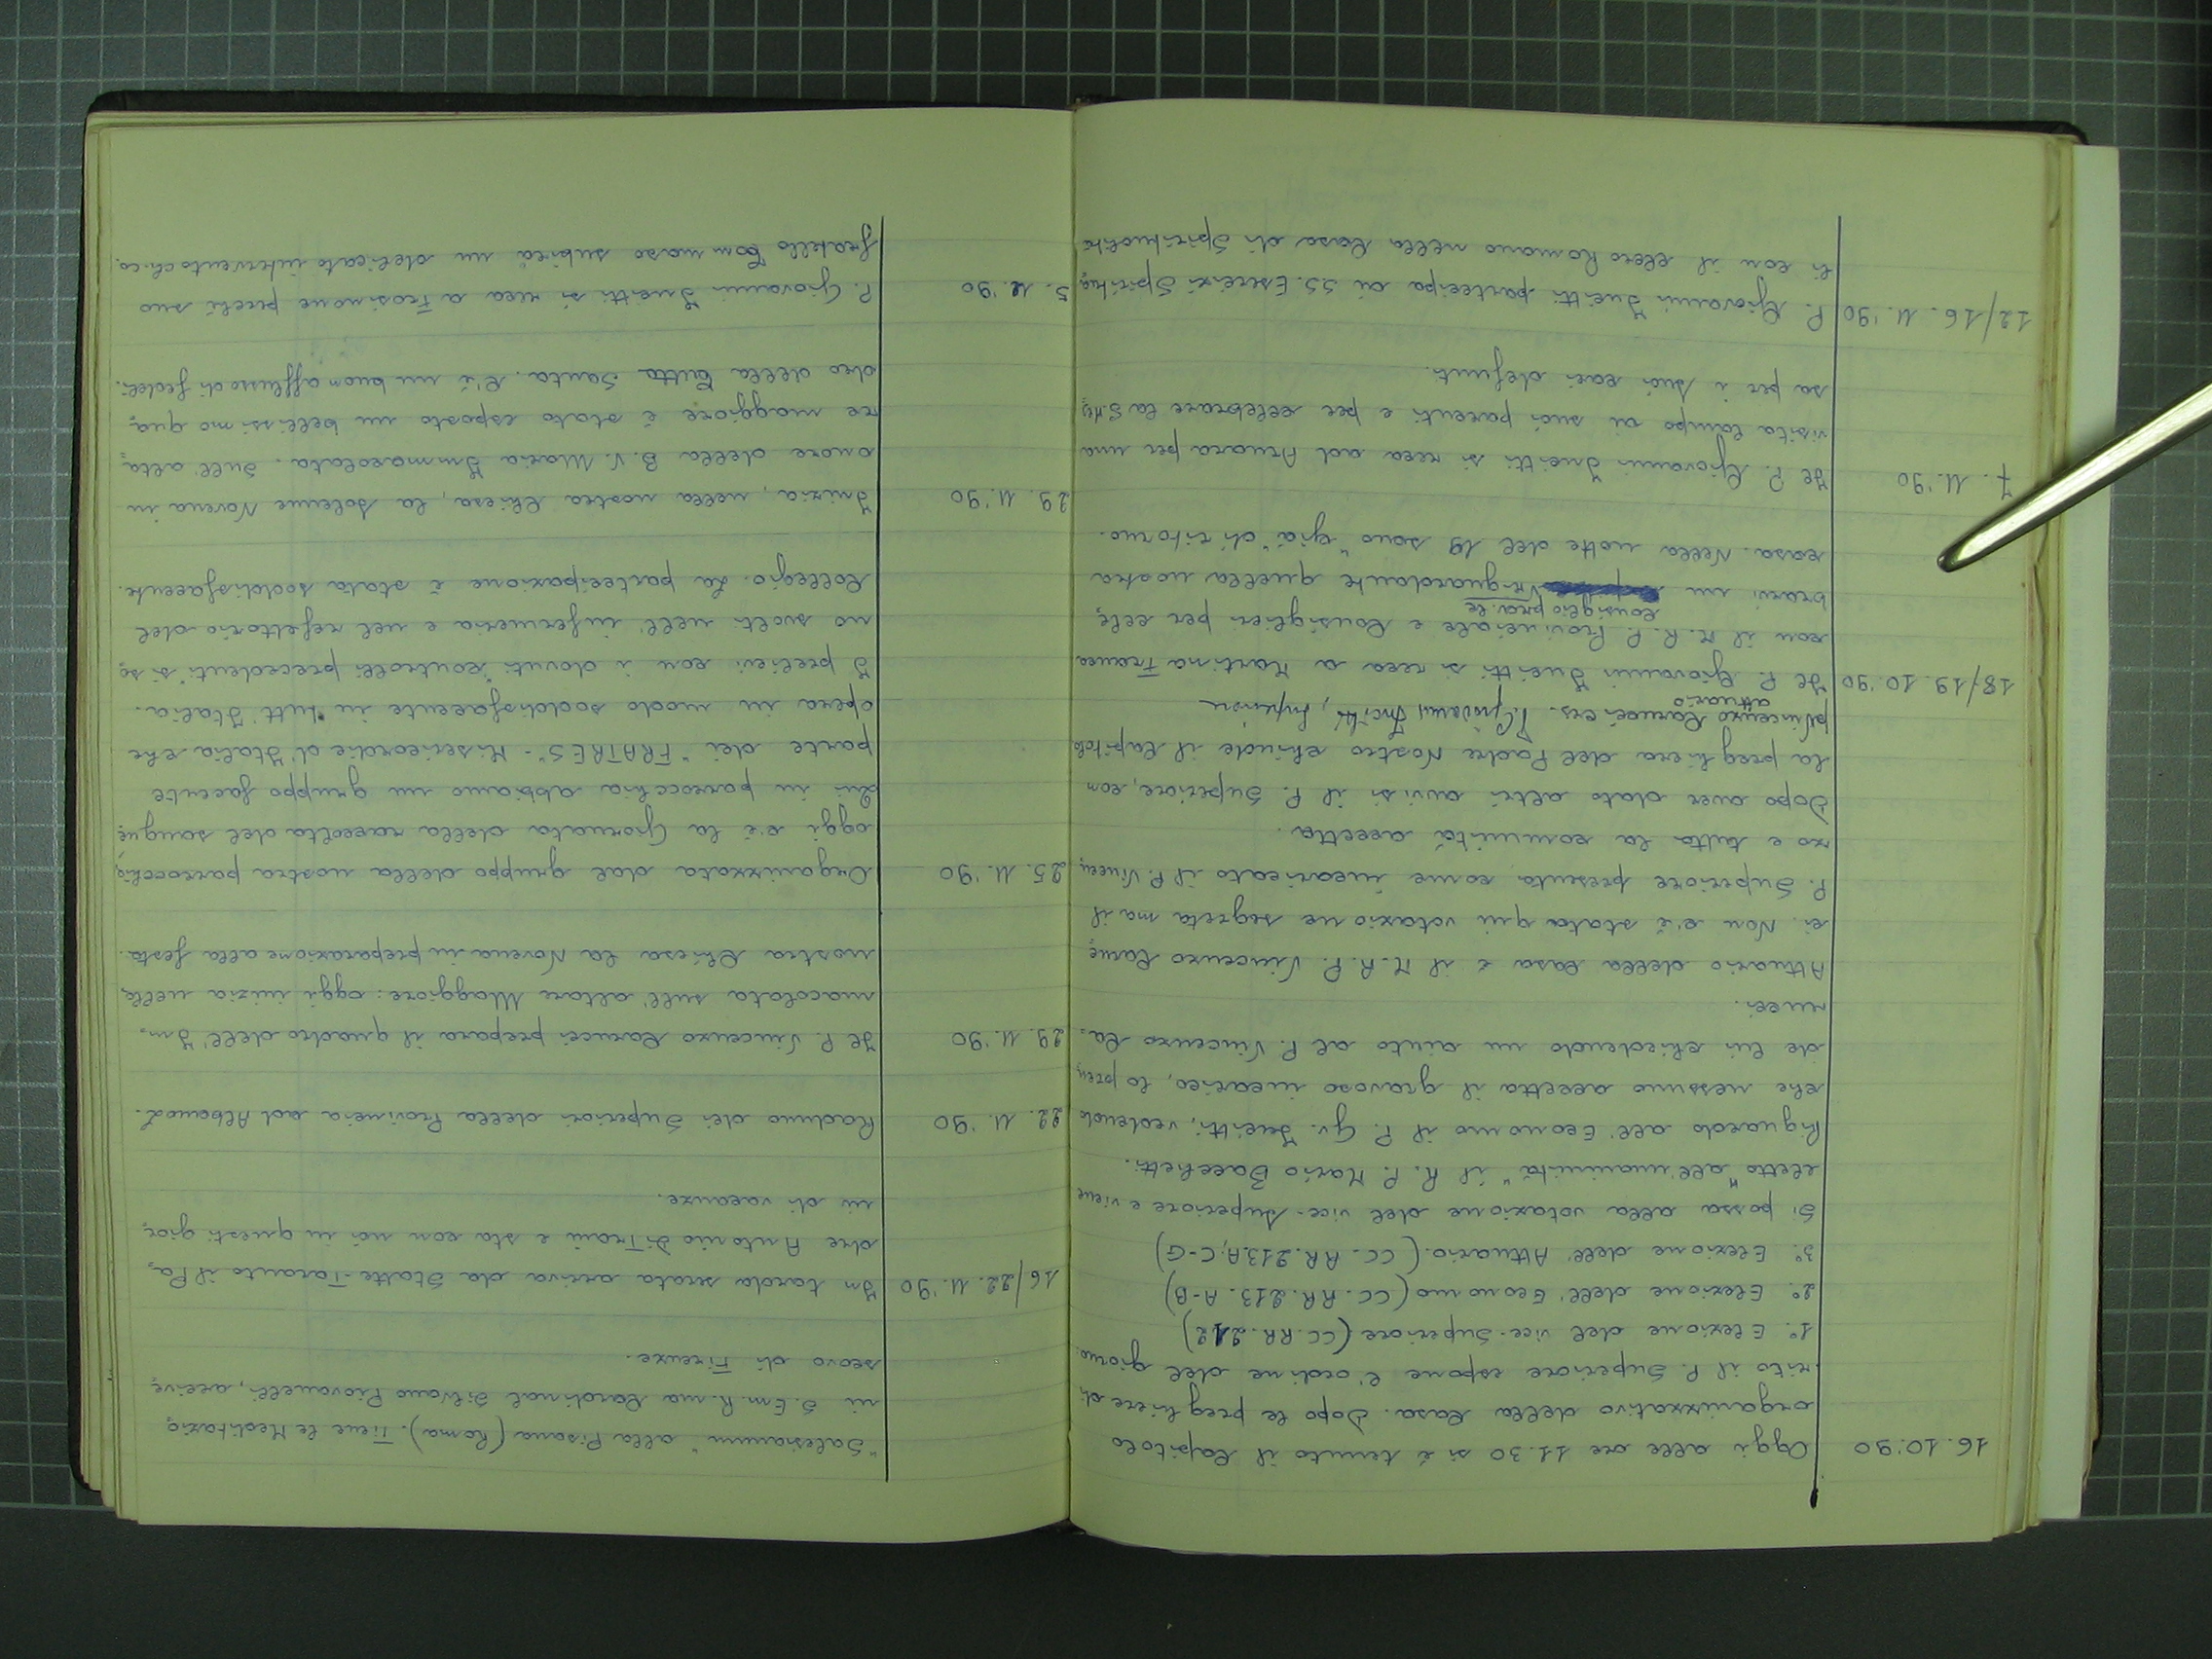 16.10.'90 Oggi alle ore 11.30 si è tenuto il Capitolo
organizzativo della Casa. Dopo le preghiere di
rito il P. Superiore espone l'ordine del giorno.
1º. Elezione del vice-Superiore (CC. RR. 212)
2º. Elezione dell'Economo (CC. RR. 213. A-B)
3º. Elezione dell'Attuario. (CC. RR. 213. A; C-G)
Si passa alla votazione del vice-Superiore e viene
eletto "all'unanimità" il R. P. Mario Bacchetti.
Riguardo all'Economo il P. Gv. Incitti, vedendo
che nessuno accetta il gravoso incarico, lo pren
de lui chiedendo un aiuto al P. Vincenzo Ca-
nucci.
Attuario della Casa è il M. R. P. Vincenzo
ci. Non c'è stata qui votazione segreta ma il
P. Superiore presenta come incaricato il P. Vincen
zo e tutta la comunità accetta.
Dopo aver dato altri avvisi il P. Superiore, con
la preghiera del Padre Nostro chiude il Capitolo
P. Giovanni Incitti, Superiore
attuario
18/19.10.'90 Il P. Giovanni Incitti si reca a Martina Franca
con il M. R. P. Provinciale e Consiglieri per cele
Consiglio prov.le
brarvi un riguardante quella nostra
casa. Nella notte del 19 sono "già" di ritorno.
7. 11.'90 Il P. Giovanni Incitti si reca ad Arnara per una
visita lampo ai suoi parenti e per celebrare la S. Mes
sa per i suoi cari defunti.
12/16. 11.'90 P. Giovanni Incitti partecipa ai SS. Esercizi Spiritua
li con il clero Romano nella Casa di Spiritualità
"Salesianum" alla Pisana (Roma). Tiene le Meditazio
ni S. Em. R.ma Cardinal Silvano Piovanelli, arcive
scovo di Firenze.
16/22. 11.'90 In tarda serata arriva da Statte-Taranto il Pa
dre Antonio Di Trani e sta con noi in questi gior
ni di vacanze.
22. 11.'90 Raduno dei Superiori della Provincia ad Albano L.
29. 11.'90 Il P. Vincenzo Canucci prepara il quadro dell'Im-
macolata sull'altare Maggiore: oggi inizia nella
nostra Chiesa la Novena in preparazione alla festa.
25. 11.'90 Organizzata dal gruppo della nostra parrocchia,
oggi c'è la Giornata della raccolta del sangue
Qui in parrocchia abbiamo un gruppo facente
parte dei "FRATRES" - Misericordie d'Italia che
opera in modo soddisfacente in tutt'Italia.
I prelievi con i dovuti "controlli" precedenti si so
no svolti nell'infermeria e nel refettorio del
Collegio. La partecipazione è stata soddisfacente.
29. 11.'90 Inizia, nella nostra Chiesa, la solenne Novena in
onore della B. V. Maria Immacolata. Sull'alta
re maggiore è stato esposto un bellissimo qua
dro della Tutta Santa. C'è un buon afflusso di fedeli.
5. 12.'90 P. Giovanni Incitti si reca a Frosinone perché suo
fratello Tommaso subirà un delicato intervento ch.co.